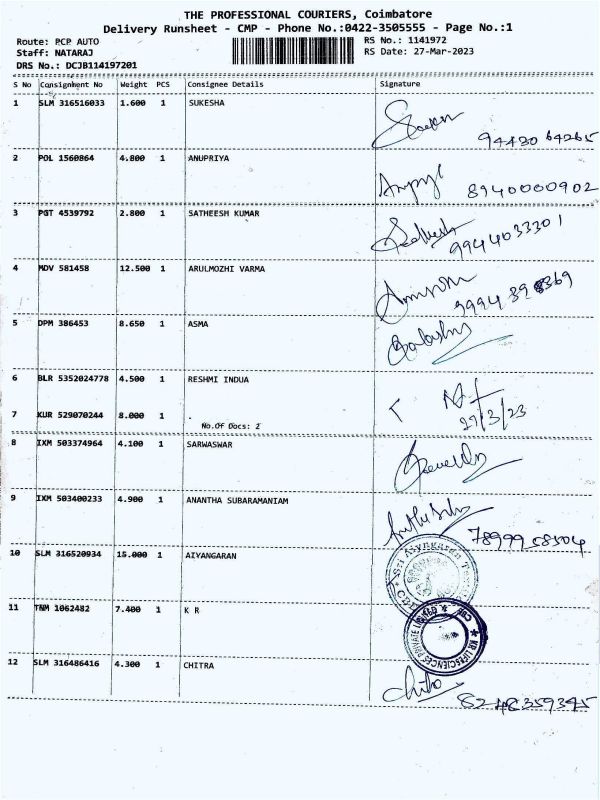 THE PROFESSIONAL COURIERS, Coimbatore
Delivery Runsheet - CMP - Phone No.:0422-3505555 - Page No.:1
Route: PCP AUTO
RS No.: 1141972
Staff: NATARAJ
RS Date: 27-Mar-2023
DRS No.: DCJB114197201
S No Consignment No Weight PCS Consignee Details Signature
1 SLM 316516033 1.600 1 SUKESHA
2 POL 1560864 4.800 1 ANUPRIYA
8940000902
3 PGT 4539792 2.800 1 SATHEESH KUMAR
9944033301
4 MDV 581458 12.500 1 ARULMOZHI VARMA
5 DPM 386453 8.650 1 ASMA
6 BLR 5352024778 4.500 1 RESHMI INDUA
7 KUR 529070244 8.000 1 .
27/3/23
No.Of Docs: 2
8 IXM 503374964 4.100 1 SARWASWAR
9 IXM 503400233 4.900 1 ANANTHA SUBARAMANIAM
10 SLM 316520934 15.000 1 AIYANGARAN
11 TNM 1062482 7.400 1 K R
KR LIFESCIENCES PRIVATE LIMITED ★ CBE ★
12 SLM 316486416 4.300 1 CHITRA
8248359345